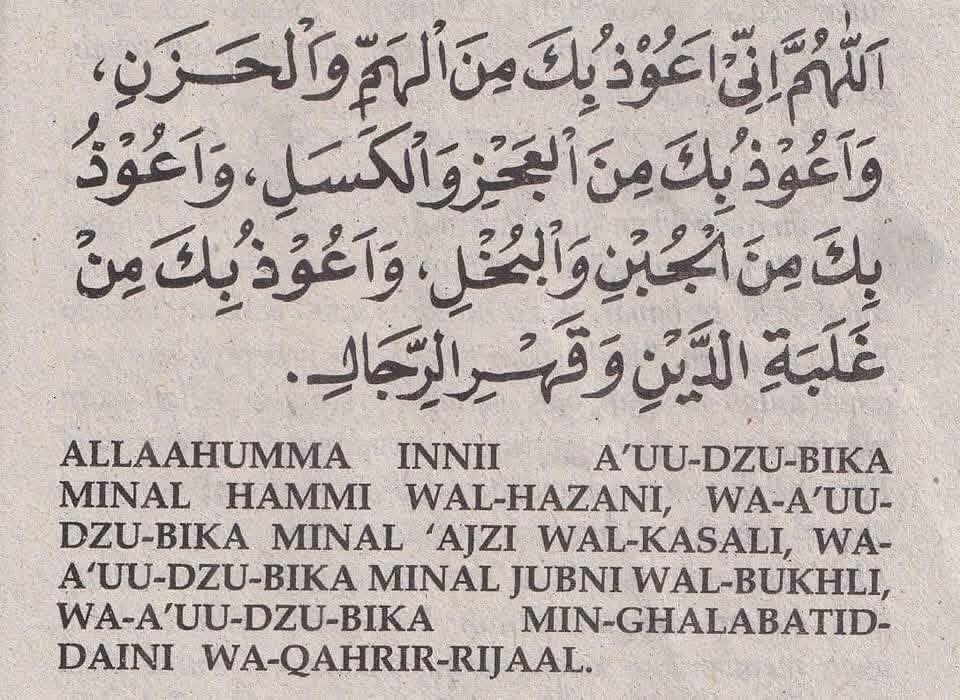 اَللّٰهُمَّ اِنِّيْ اَعُوْذُ بِكَ مِنَ الْهَمِّ وَالْحَزَنِ،
وَاَعُوْذُ بِكَ مِنَ الْعَجْزِ وَالْكَسَلِ، وَاَعُوْذُ
بِكَ مِنَ الْجُبْنِ وَالْبُخْلِ، وَاَعُوْذُ بِكَ مِنْ
غَلَبَةِ الدَّيْنِ وَقَهْرِ الرِّجَالِ.
ALLAAHUMMA INNII A'UU-DZU-BIKA
MINAL HAMMI WAL-HAZANI, WA-A'UU-
DZU-BIKA MINAL 'AJZI WAL-KASALI, WA-
A'UU-DZU-BIKA MINAL JUBNI WAL-BUKHLI,
WA-A'UU-DZU-BIKA MIN-GHALABATID-
DAINI WA-QAHRIR-RIJAAL.